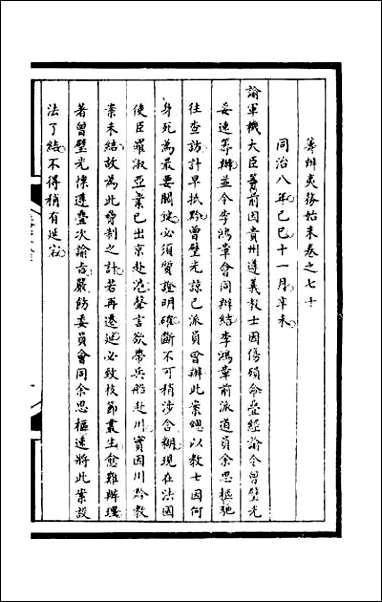 籌辦夷務始末卷之七十
同治八年己巳十一月辛未
諭軍機大臣等前因貴州遵義教士因傷殞命疊經諭令曾璧光
妥速籌辦並令李鴻章會同辦結李鴻章前派道員余思樞馳
往查訪計早抵黔曾璧光諒已派員會辦此案總以教士因何
身死為最要關鍵必須質證明確斷不可稍涉含糊現在法國
使臣羅淑亞業已出京赴滬聲言欲帶兵船赴川實因川黔教
案未結故為此脅制之計若再遷延必致枝節叢生愈難辦理
著曾璧光懍遵疊次諭旨嚴飭委員會同余思樞速將此案設
法了結不得稍有延宕